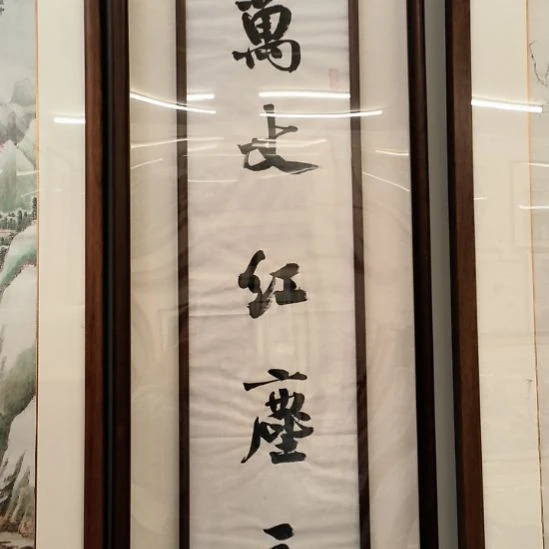 萬丈紅塵三